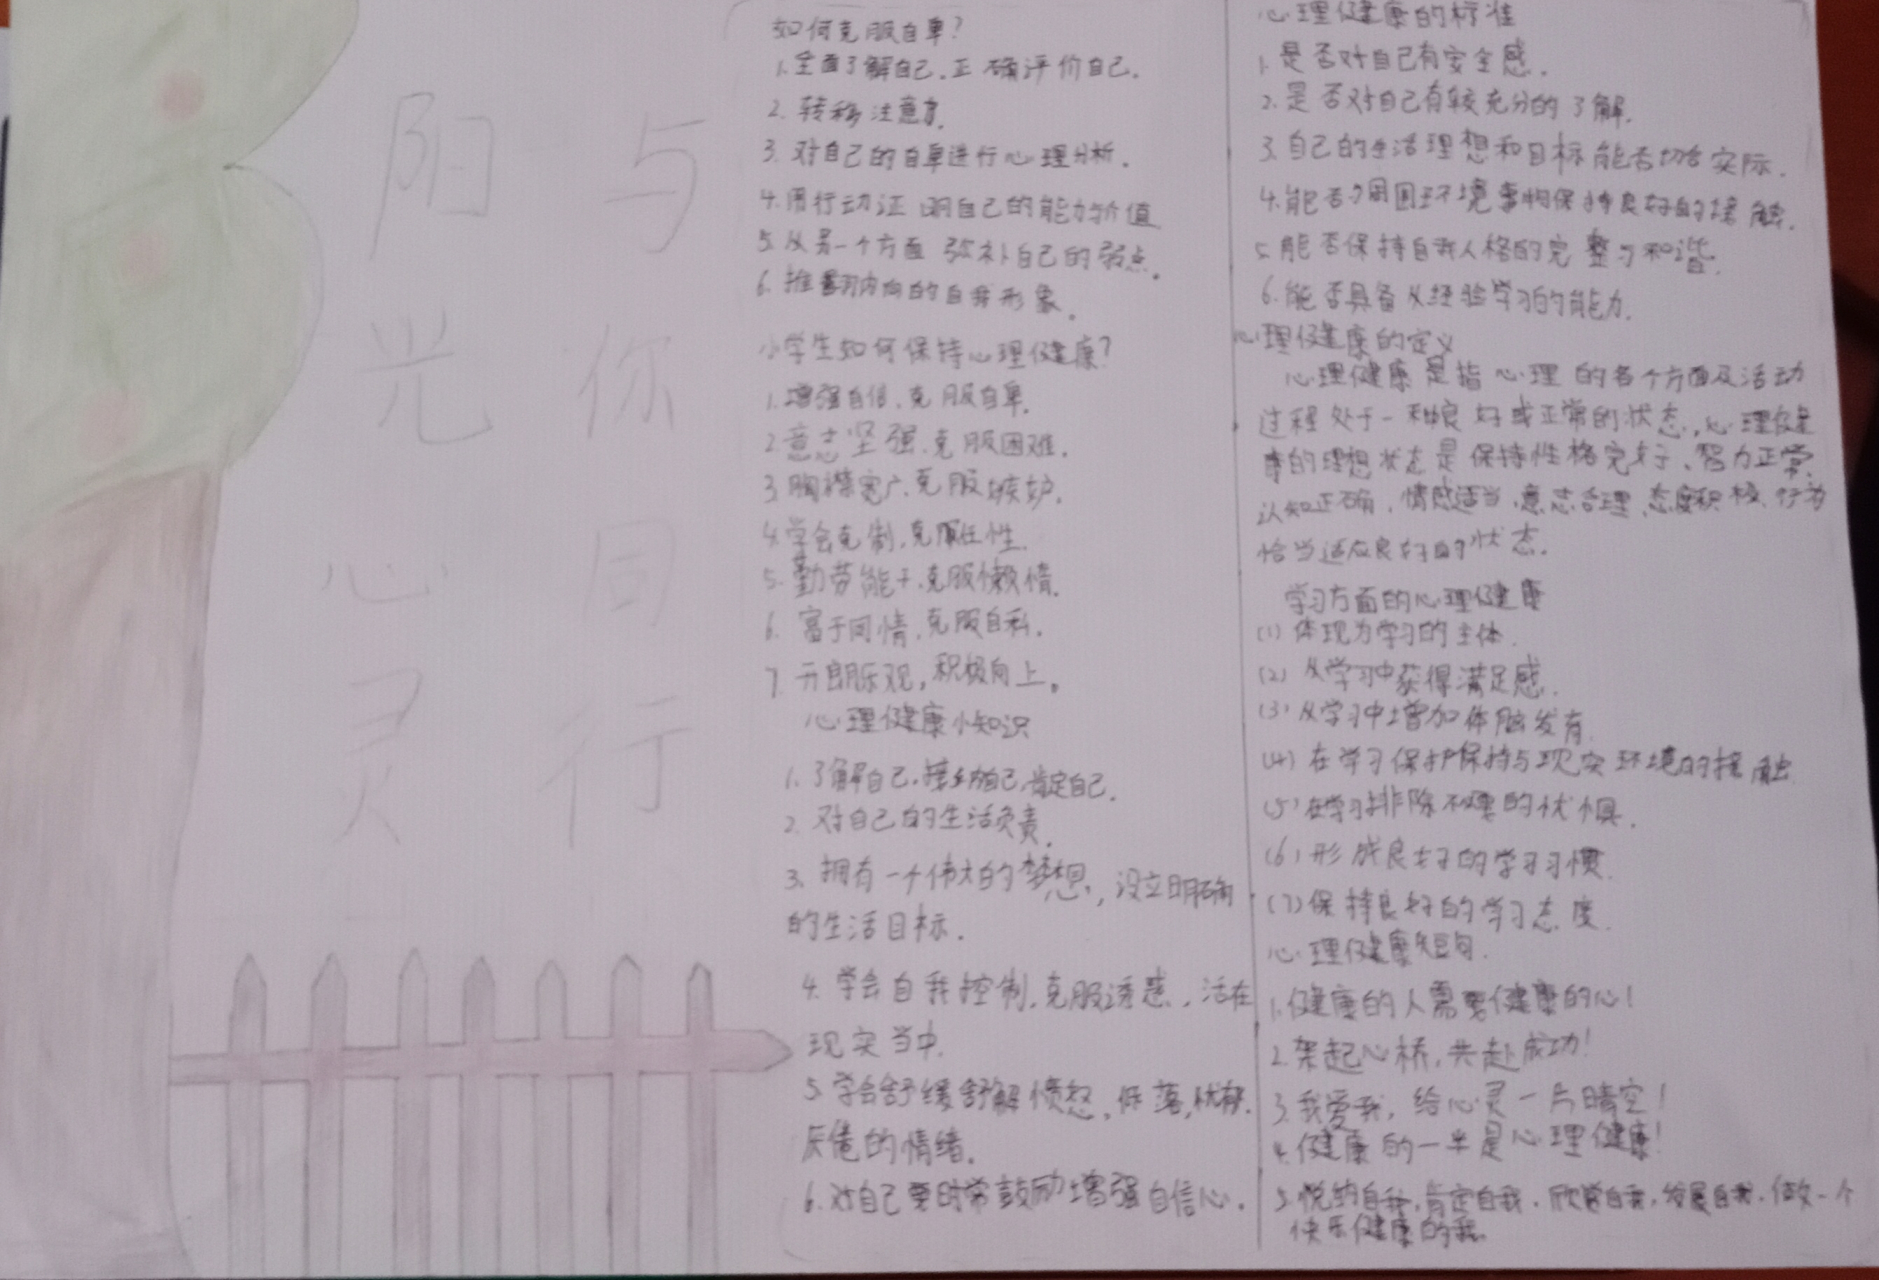 阳光心灵
与你同行
如何克服自卑?
1. 全面了解自己,正确评价自己.
2. 转移注意力.
3. 对自己的自卑进行心理分析.
4. 用行动证明自己的能力价值
5. 从另一个方面弥补自己的弱点.
6. 推翻内向的自我形象.
小学生如何保持心理健康?
1. 增强自信、克服自卑.
2. 意志坚强、克服困难.
3. 胸襟宽广、克服嫉妒.
4. 学会克制,克服任性.
5. 勤劳能干,克服懒惰.
6. 富于同情,克服自私.
7. 开朗乐观,积极向上。
心理健康小知识
1. 了解自己,接纳自己,肯定自己.
2. 对自己的生活负责.
3. 拥有一个伟大的梦想,设立明确
的生活目标.
4. 学会自我控制,克服诱惑,活在
现实当中.
5. 学会舒缓舒解愤怒,低落,忧郁.
厌倦的情绪.
6. 对自己要时常鼓励增强自信心.
心理健康的标准
1. 是否对自己有安全感.
2. 是否对自己有较充分的了解.
3. 自己的生活理想和目标能否切合实际.
4. 能否与周围环境事物保持良好的接触.
5. 能否保持自我人格的完整与和谐.
6. 能否具备从经验学习的能力.
心理健康的定义
心理健康是指心理的各个方面及活动
过程处于一种良好或正常的状态,心理健
康的理想状态是保持性格完好、智力正常、
认知正确,情感适当,意志合理,态度积极、行为
恰当适应良好的状态.
学习方面的心理健康
(1) 体现为学习的主体.
(2) 从学习中获得满足感.
(3) 从学习中增加体脑发育.
(4) 在学习保护保持与现实环境的接触
(5) 在学习排除不必要的忧惧.
(6) 形成良好的学习习惯.
(7) 保持良好的学习态度.
心理健康短句.
1. 健康的人需要健康的心!
2. 架起心桥,共赴成功!
3. 我爱我,给心灵一片晴空!
4. 健康的一半是心理健康!
5. 悦纳自我,肯定自我,欣赏自我,发展自我,做一个
快乐健康的我.